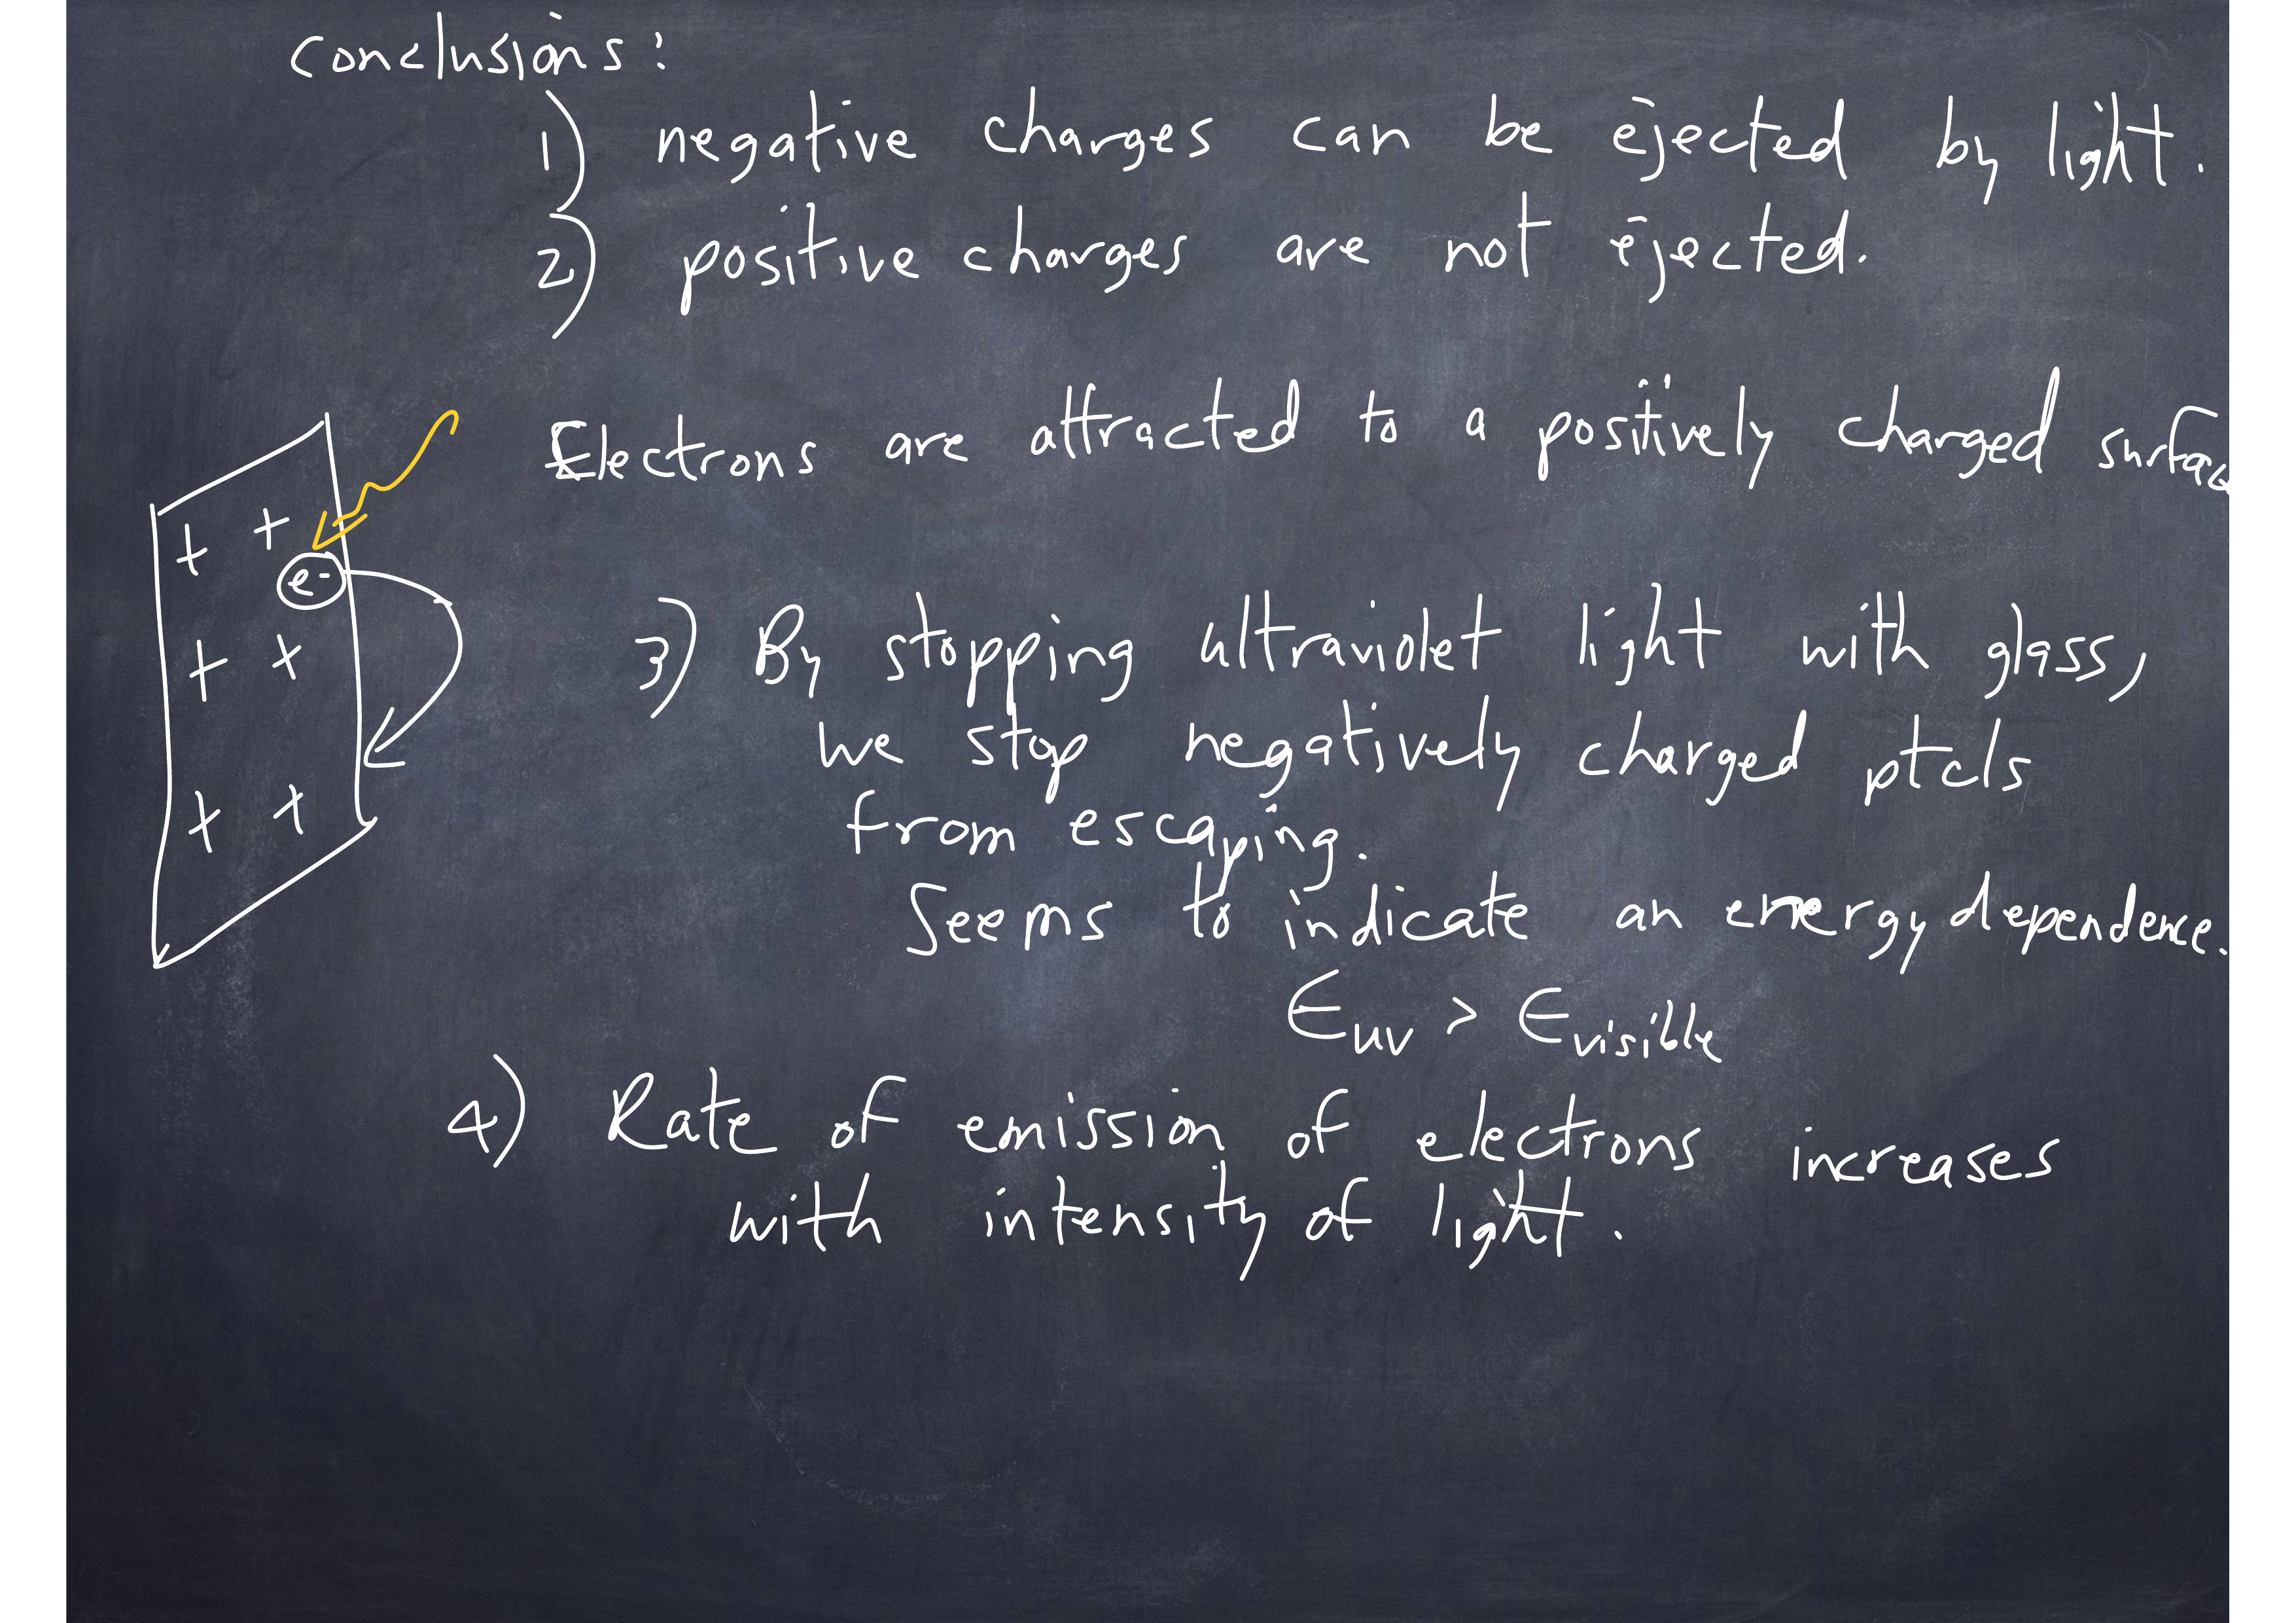 Conclusions:
1) negative charges can be ejected by light.
2) positive charges are not ejected.
Electrons are attracted to a positively charged surfac
+ +
e-
+ +
+ +
3) By stopping ultraviolet light with glass,
we stop negatively charged ptcls
from escaping.
Seems to indicate an energy dependence.
Euv > Evisible
4) Rate of emission of electrons increases
with intensity of light.